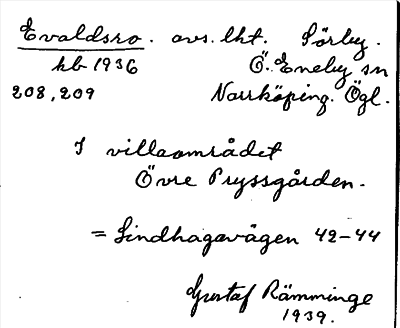 Evaldsro. avs. lht. Sörby.
kb 1936 Ö. Eneby sn
208,209 Norrköping. Ögl.
I villaområdet
Övre Pryssgården.
= Lindhagavägen 42-44
Gustaf Rämminge
1939.